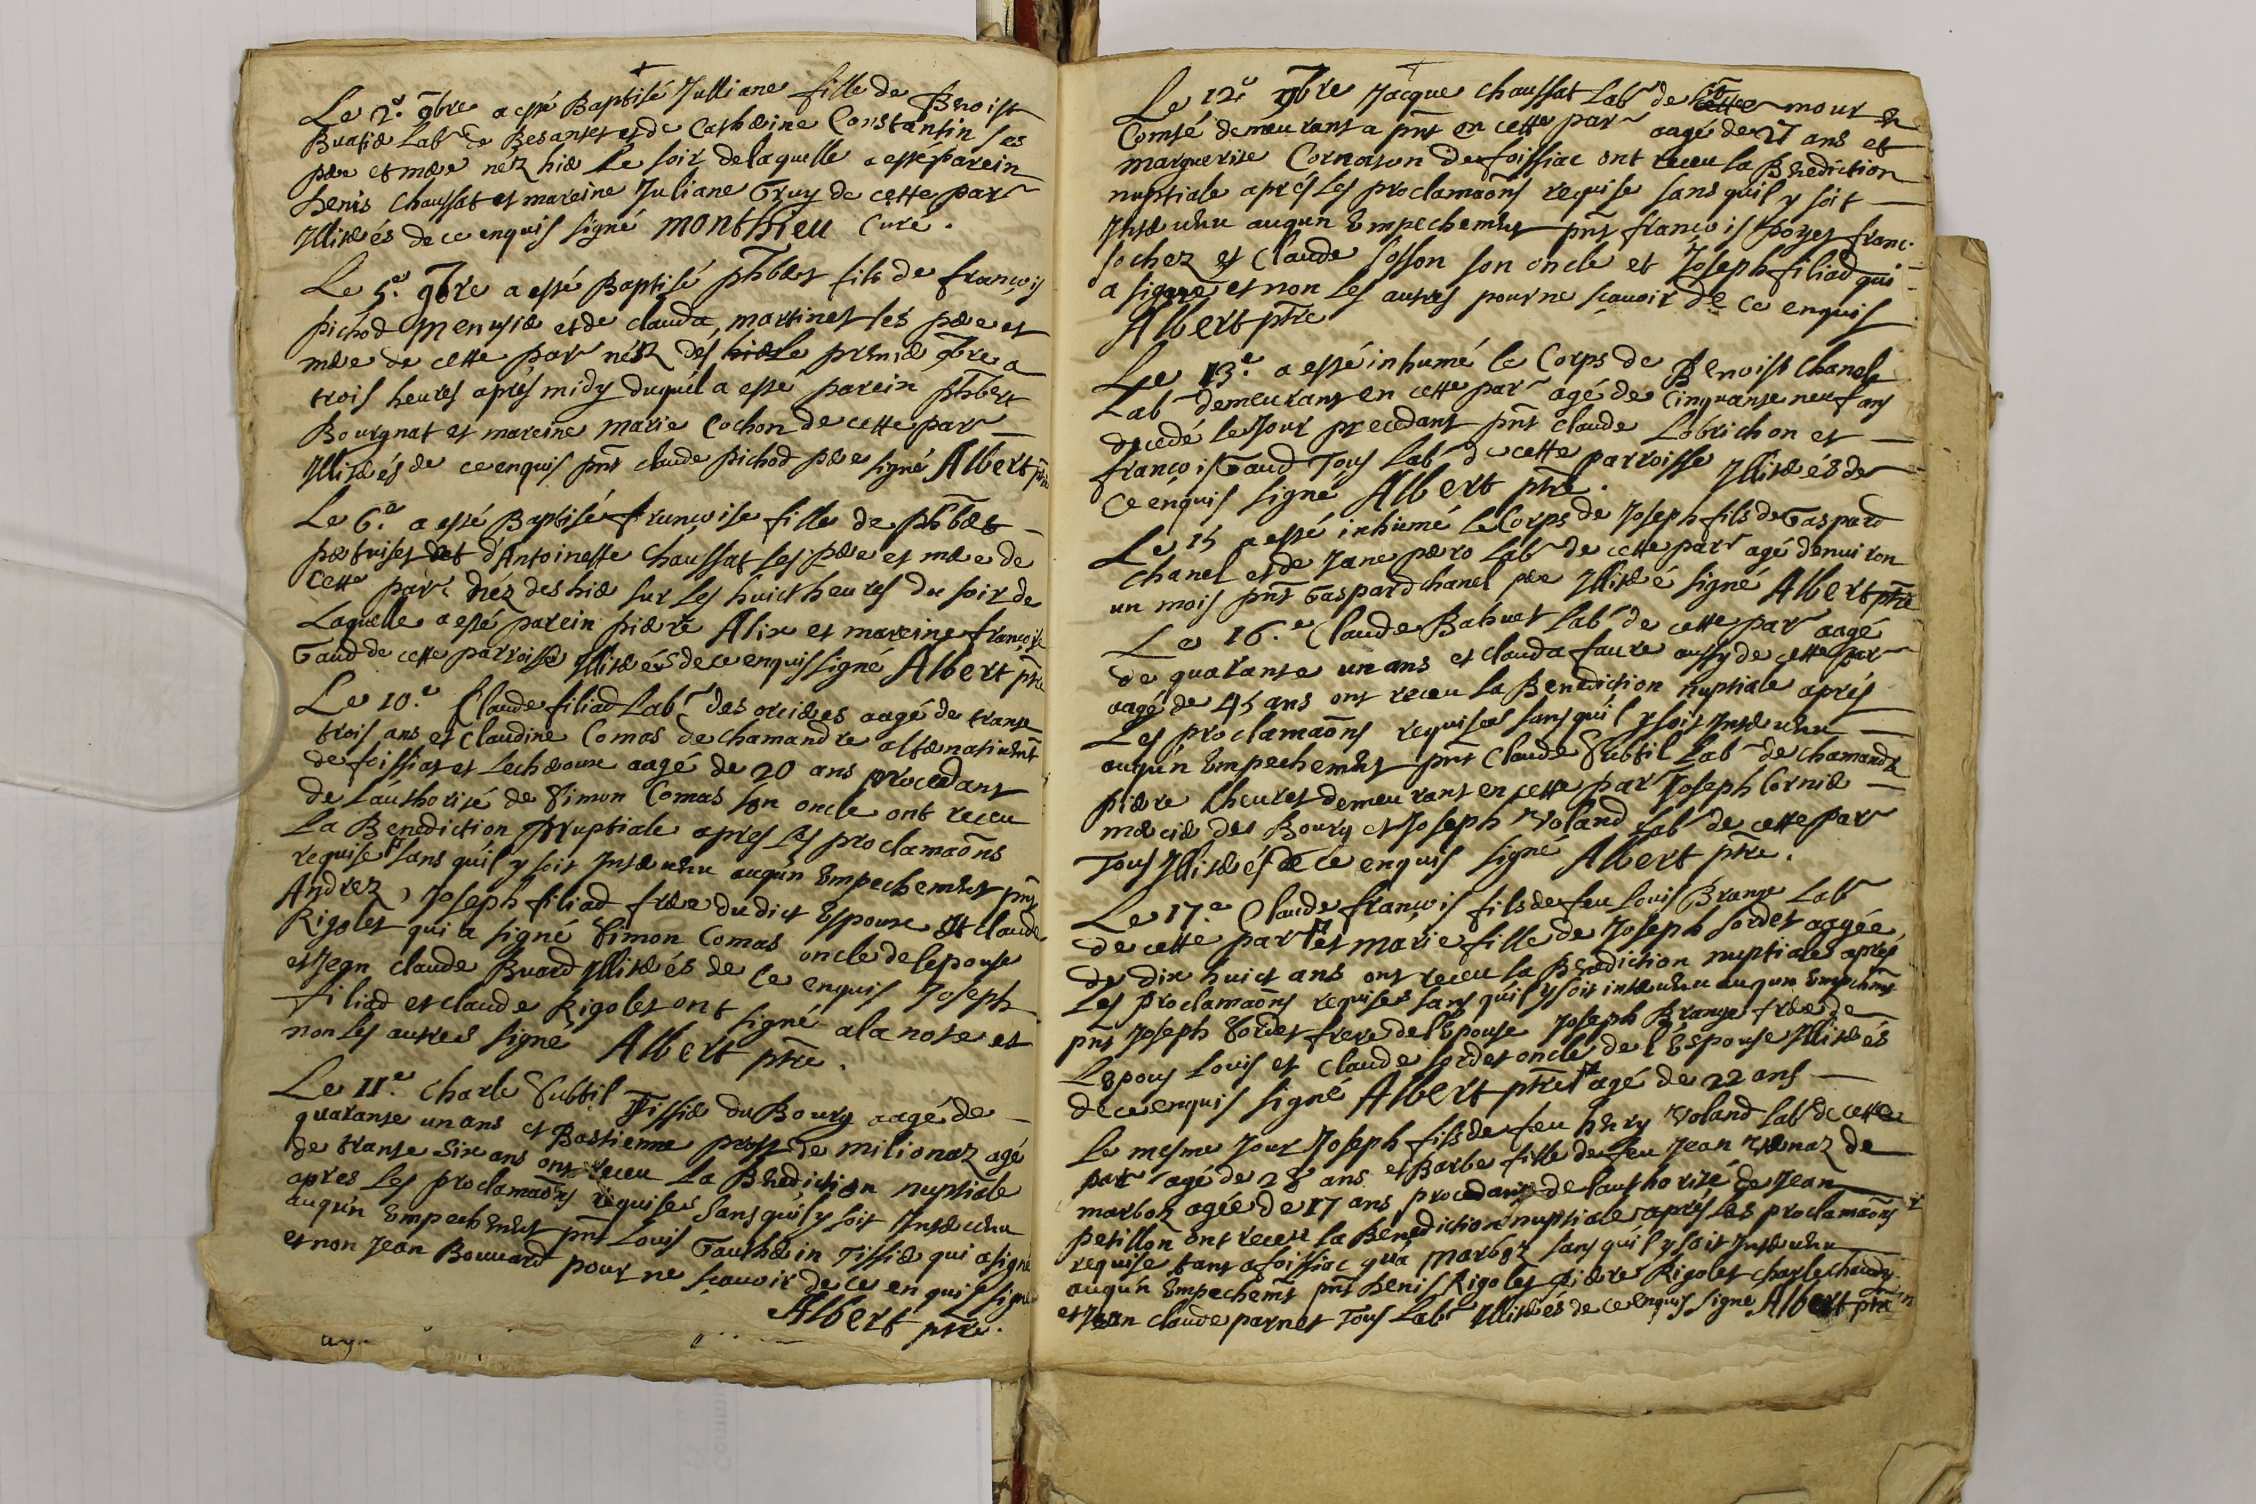 Le 2e. 9bre a esté Baptisé Julliane fille de Benoist
Buatié Labr de Besantet et de Cathėrine Constantin ses
pėre et mėre néz hiė Le soir de laquelle a esté parein
Denis Chaussat et mareine Juliane Gruy de cette parr
Illitėrés de ce enquis signé Monthieu Curé.
Le 5e. 9bre a esté Baptisé phbėrt fils de françois
pichod Menusiė et de clauda martinet ses pėre et
mėre de cette parr néz dés le premiė 9bre a
trois heures aprés midy duquél a esté parein phbert
Bourgnat et mareine marie Cochon de cette parr
Illitėrés de ce enquis pnt claude pichod pėre signé Albert ptre
Le 6e. a esté Baptisé françoise fille de phbėrt
et d'Antoinette chaussat ses pėre et mėre de
Cette parr néz des hiė sur Les huict heures du soir de
Laquelle a esté parein piėrre Alix et mareine françoise
Gaud de cette parroisse Illitėrés de ce enquis signé Albert ptre
Le 10e. Claude filiad Labr des orciėres aagé de trante
trois ans et Claudine Comas de chamandre altėrnativemt
de foissiat et Lechėroux aagé de 20 ans procedant
de Lauthorité de Simon Comas son oncle ont receu
La Benediction Nuptiale apres Les proclamaõns
requises sans qu'il y soit Intėruenu auqun Empechement pnt
Andrez, Joseph filiad frėre du dict Espoux et claude
Rigolet qui a signé Simon Comas oncle de lepouse
et Jean claude Buard Illitėrés de ce enquis Joseph
filiad et claude Rigolet ont signé a la note et
non les autres signé Albert ptre.
Le 11e. Charle Subtil Tissiė du Bourg aagé de
quarante un ans et Bastienne de milionaz agé
de trante Six ans ont receu La Benediction nuptiale
apres Les proclamaõns requises Sans qu'il y soit Intėruenu
auqun Empechement pnt Louis Gauthėrin Tissiė qui a signé
et non Jean Bouuard pour ne sçauoir de ce enquis signé
Albert ptre.
Le 12e 9bre Jacque chaussat Labr de St mour en
Comté demeurant a pnt en cette parr aagé de 27 ans et
marguerite Cornaton de foissiac ont receu la Benediction
nuptiale aprés Les proclamaõns requise sans quil y soit
Intėruenu auqun Empechement pnt françois poyet franc.
sochez et Claude sosson son oncle et Joseph filiad qui
a signé et non Les autres pour ne sçauoir de ce enquis
Albert ptre
Le 13e. a esté inhumé le Corps de Benoist Chanel
Labr demeurant en cette parr agé de Cinquante neuf ans
decedé le Jour precedant pnt claude Lobrichon et
françois Gaud Tous Labr de cette parroisse Illitėrés de
Ce enquis signé Albert ptre.
Le 15 a esté inhumé Le Corps de Joseph fils de Gaspard
Chanel et de Jane pėro Labr de cette parr agé denuiron
un mois pnt Gaspard chanel pėre Illitėré signé Albert ptre
Le 16.e Claude Bahuet Labr de cette parr aagé
de quarante un ans et clauda faure aussy de cette parr
aagé de 45 ans ont receu la Benediction nuptiale aprés
Les proclamaõns requises sans qu'il y soit Intėruenu
auqun Empechement pnt Claude Subtil Labr de chamandre
piėrre Cheuret demeurant en cette parr Joseph Corniė
mėrciė de Bourg et Joseph Voland Labr de cette parr
Tous Illitėrés de ce enquis signé Albert ptre.
Le 17.e Claude françois fils de feu Louis Brange Labr
de cette parr et marie fille de Joseph sordet aagée
de dix huict ans ont receu la Benediction nuptiale aprés
Les proclamaõns requises sans quil y soit intėruenu auqun Empechmt
pnt Joseph Sordet frere de l'Epouse Joseph Brange frėre de
Lepoux Louis et Claude sordet oncle de l'Espouse Illitėrés
de ce enquis signé Albert ptre agé de 22 ans
Le mesme Jour Joseph fils de feu henry Voland Labr de cette
parr agé de 28 ans et Barbe fille de feu Jean de
marboz agée de 17 ans procedant de lauthorité de Jean
petillon ont receu la Benediction nuptiale aprés Les proclamaõns
requise tant a foissiac qu'a Marboz sans quil y soit Intėruenu
auqun Empechemt pnt Denis Rigolet piėrre Rigolet charle
et Jean claude parnet Tous Labr Illitėrés de ce enquis signé Albert ptre